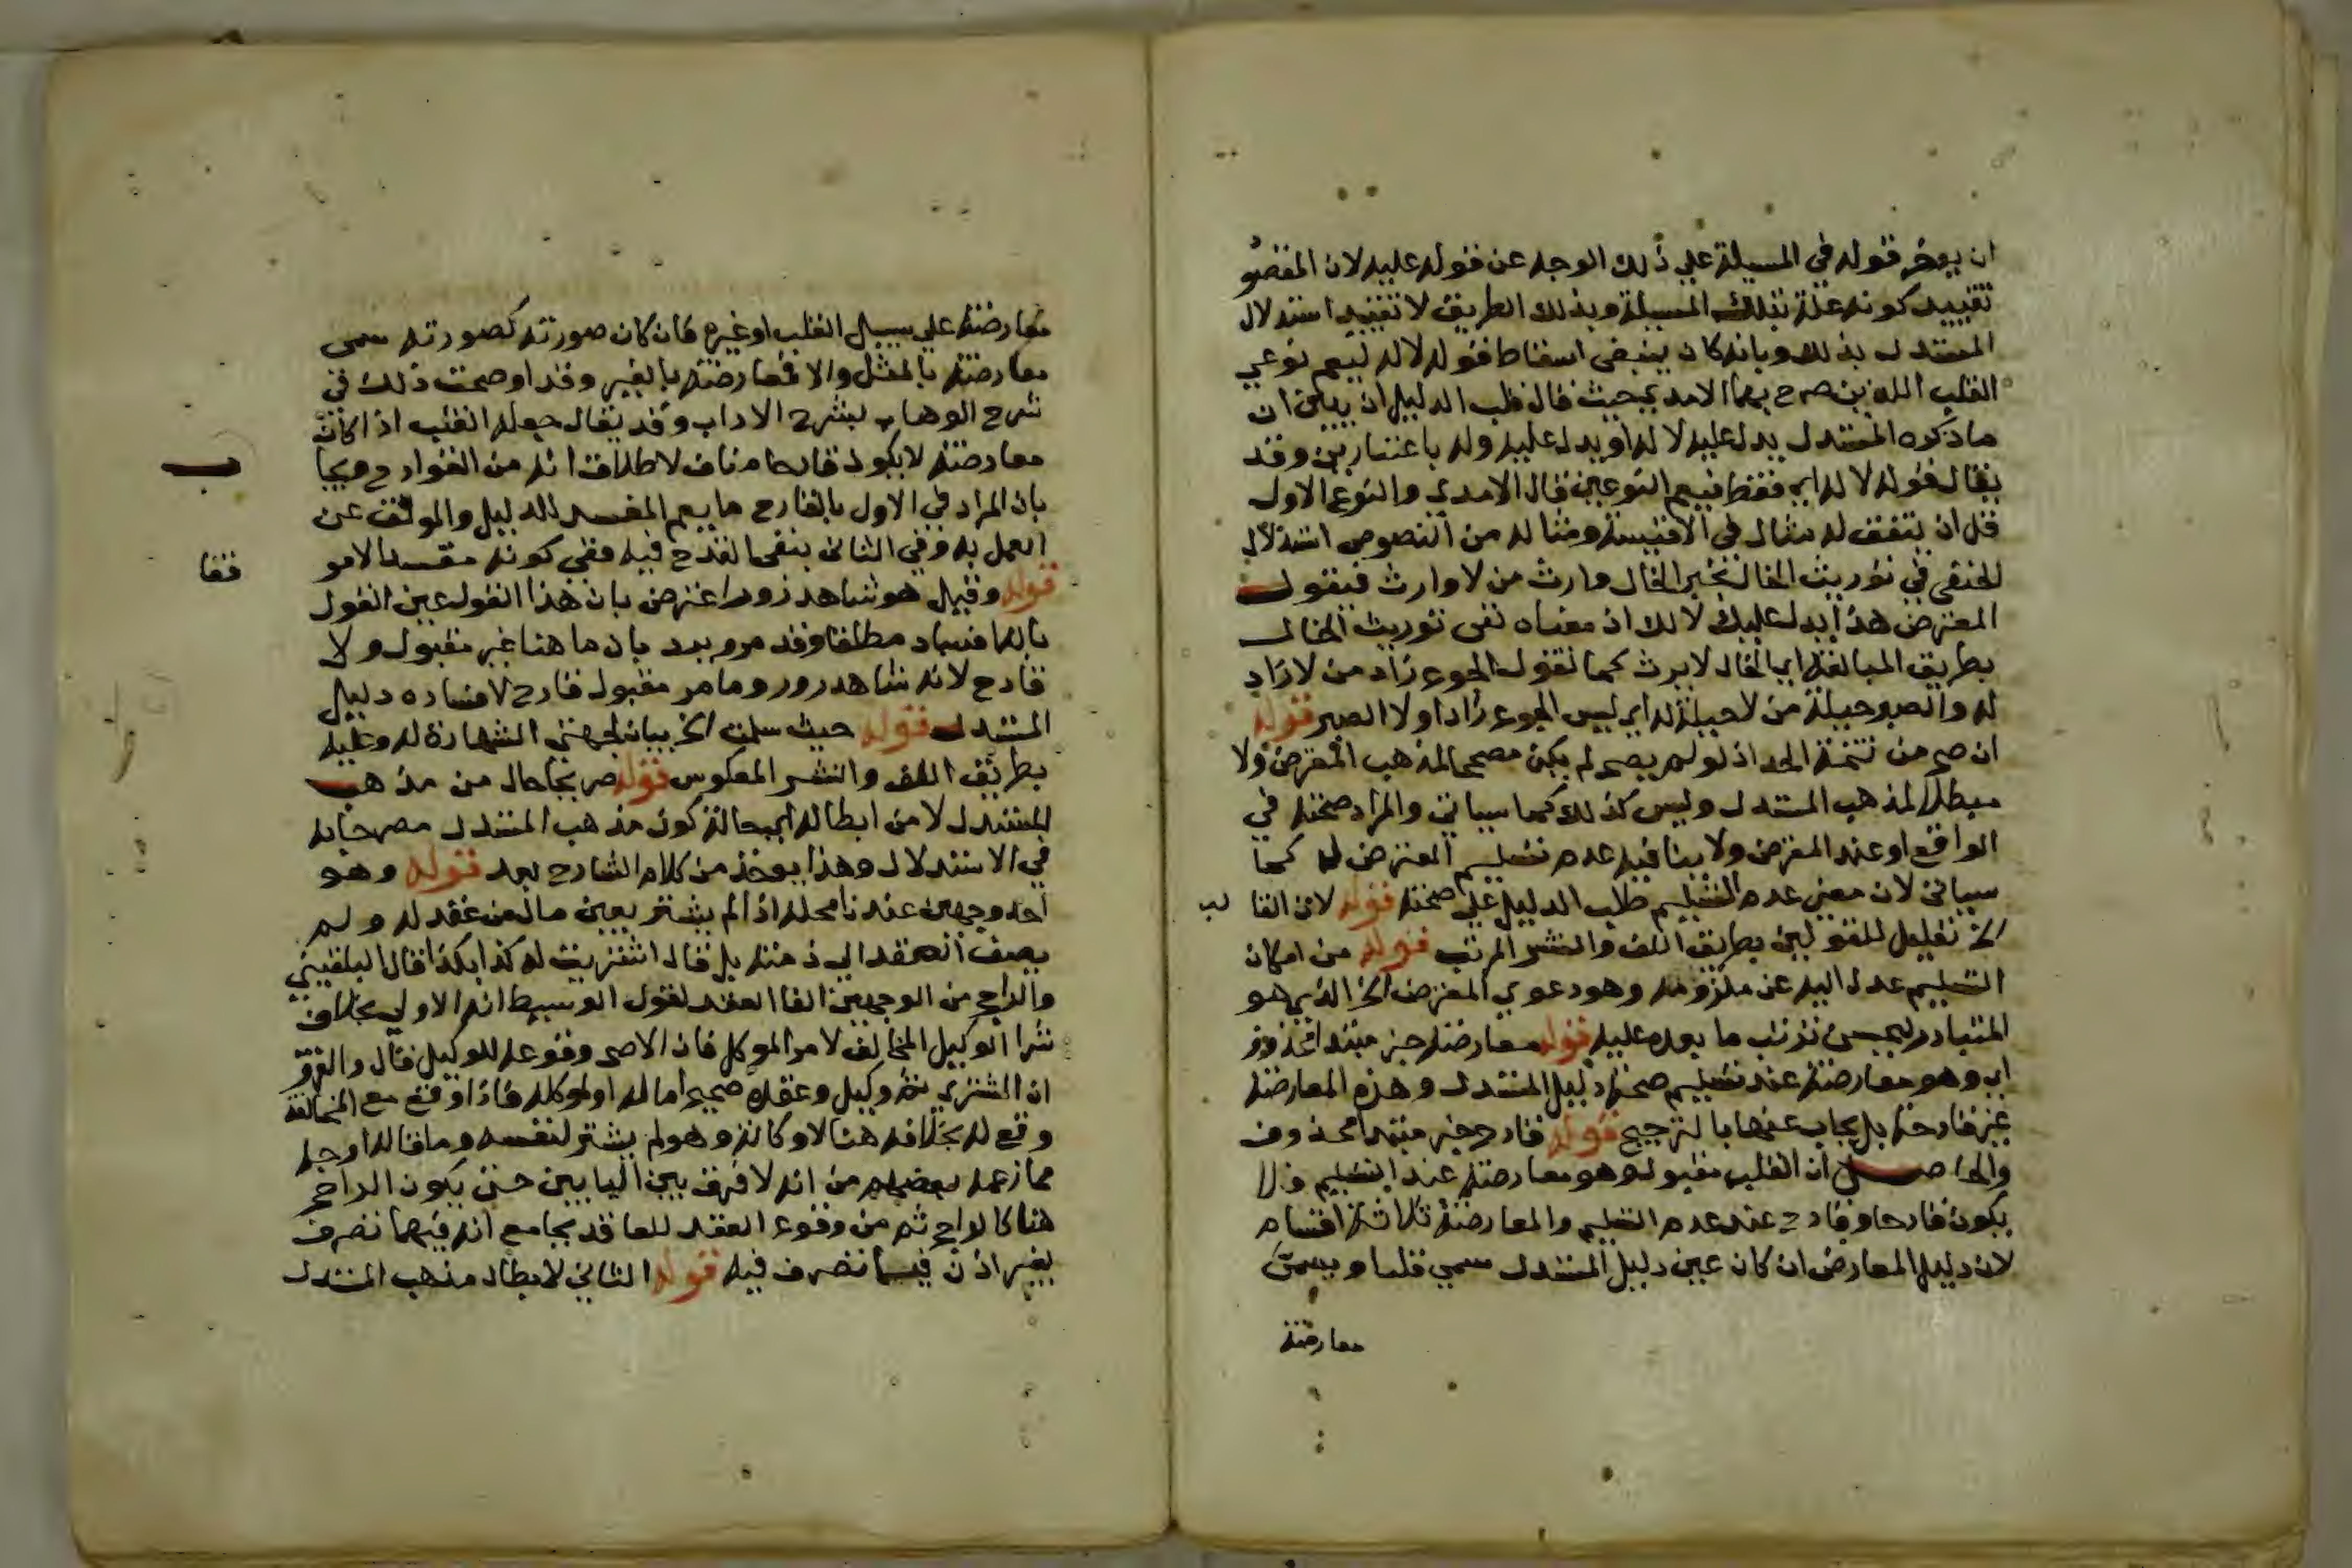 ان يوخر قوله في المسيلة علي ذلك الوجه عن قوله عليه لان المقصو
تقييد كونه علة بتلك المسيلة وبذلك الطريق لا تقييد استدلال
المستدل بذلك وبانه كان ينبغي اسقاط قوله لا له ليعم نوعي
القلب اللذين صرح بهما الامدي حيث قال قلب الدليل ان يبين ان
ما ذكره المستدل يدل عليه لا له او يدل عليه وله باعتبارين وقد
يقال قوله لا له اي فقط فيعم النوعين قال الامدي والنوع الاول
قل ان يتفق له مثال في الاقيسة ومثاله من النصوص استدلال
الحنفي في توريث الخال بخبر الخال وارث من لا وارث فيقول
المعترض هذا يدل عليك لا لك اذ معناه نفي توريث الخال
بطريق المبالغة اي الخال لا يرث كما تقول الجوع زاد من لا زاد
له والصبر حيلة من لا حيلة له اي ليس الجوع زادا ولا الصبر قوله
ان صح من تتمة الحد اذ لو لم يصح لم يكن مصححا لمذهب المعترض ولا
مبطلا لمذهب المستدل وليس كذلك كما سياتي والمراد صحته في
الواقع او عند المعترض ولا ينافيه عدم تسليم المعترض له كما
سياتي لان معني عدم التسليم طلب الدليل علي صحته قوله لان القا لب
الخ تعليل للقولين بطريق اللف والنشر المرتب قوله من امكان
التسليم عدل اليه عن ملزومه وهو دعوي المعترض الخ الذي هو
المتبادر ليحسن ترتب ما بعده عليه قوله معارضة خبر مبتدا محذوف
اي وهو معارضة عند تسليم صحة دليل المستدل وهذه المعارضة
غير قادحة بل يجاب عنها بالترجيح قوله قادح خبر مبتدا محذوف
والحاصل ان القلب مقبول وهو معارضة عند التسليم فلا
يكون قادحا وقادح عند عدم التسليم والمعارضة ثلاثة اقسام
لان دليل المعارض ان كان عين دليل المستدل سمي قلبا ويسمي
معارضة
معارضة علي سبيل القلب او غيره فان كان صورته كصورته سمي
معارضة بالمثل والا فمعارضة بالغير وقد اوضحت ذلك في
شرح الوهاب بشرح الاداب وقد يقال جعله القلب اذا كان
معارضة لا يكون قادحا مناف لاطلاق انه من القوادح ويجا ب
بان المراد في الاول بالقادح ما يعم المفسد للدليل والموقف عن
العمل به وفي الثاني بنفي القدح فيه نفي كونه مفسدا لا مو قفا
قوله وقيل هو شاهد زور اعترض بان هذا القول عين القول
بالافساد مطلقا وقد مر ويرد بان ما هنا غير مقبول ولا
قادح لانه شاهد زور وما مر مقبول قادح لافساده دليل
المستدل قوله حيث سلمت الخ بيان لجهتي الشهادة له وعليه
بطريق اللف والنشر المعكوس قوله صريحا حال من مذهب
المستدل لا من ابطاله اي بحالة كون مذهب المستدل مصرحا به
في الاستدلال وهذا يوخذ من كلام الشارح بعد قوله وهو
احد وجهين عندنا محله اذا لم يشتر بعين مال من عقد له ولم
يصف العقد الي ذمته بل قال اشتريت له كذا بكذا قال البلقيني
والراجح من الوجهين الغا العقد لقول الوسيط انه الاولي بخلاف
شرا الوكيل المخالف لامر الموكل فان الاصح وقوعه للوكيل قال والفرق
ان المشتري ثم وكيل وعقده صحيح اما له او لموكله فاذا اوقع مع المخالفة
وقع له بخلافه هنا لا وكالة وهو لم يشتر لنفسه وما قاله اوجه
مما زعمه بعضهم من انه لا فرق بين البابين حتي يكون الراجح
هنا كالراجح ثم من وقوع العقد للعاقد بجامع انه فيهما تصرف
بغير اذن فيما تصرف فيه قوله الثاني لابطال مذهب المستدل